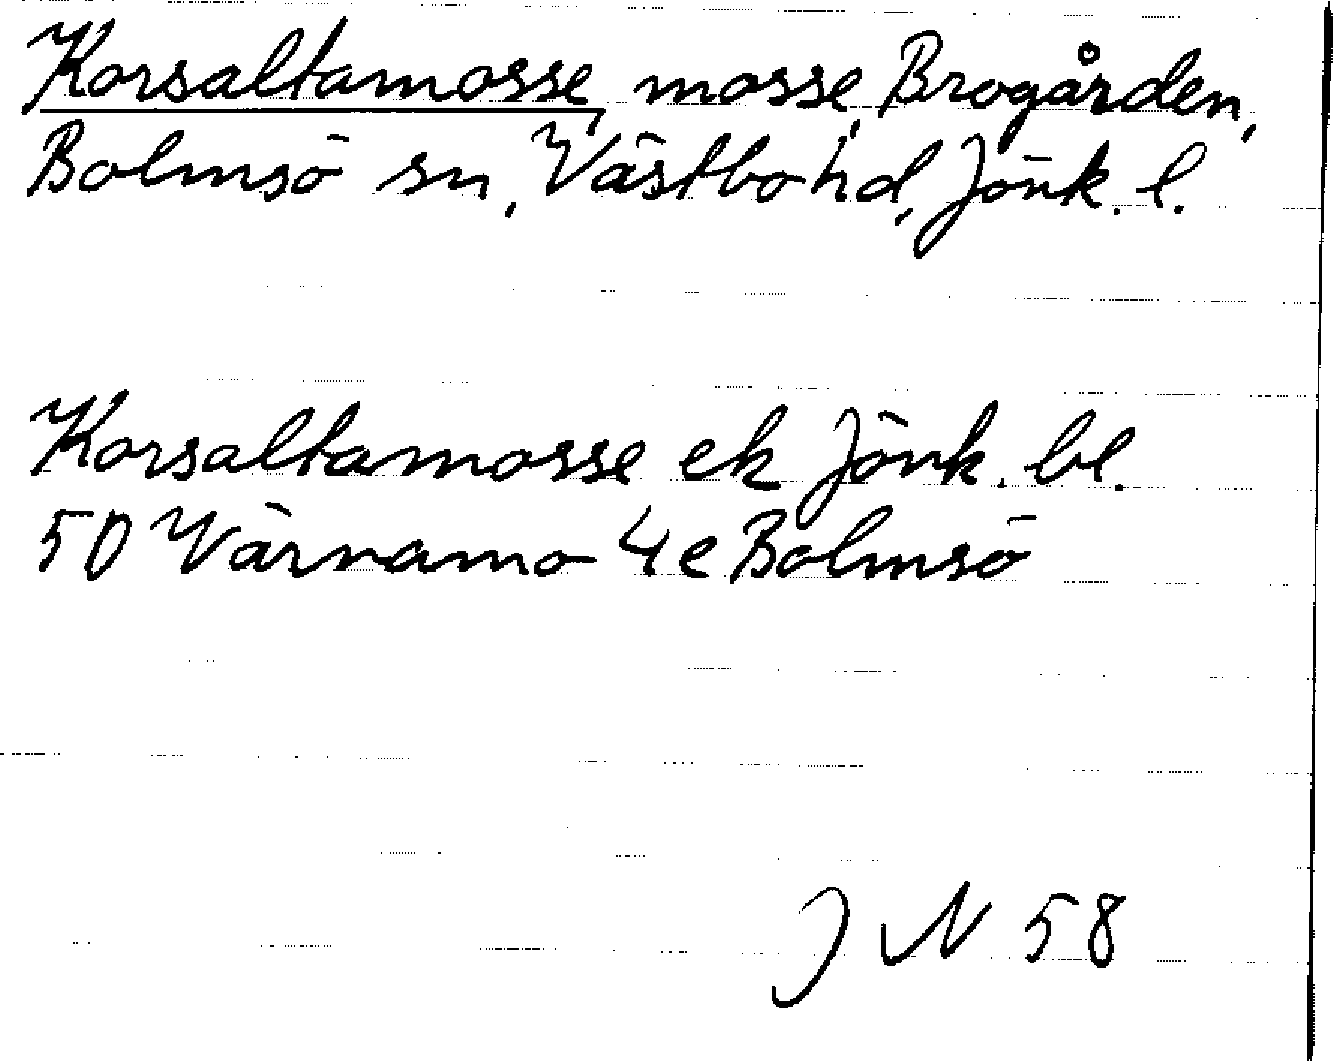 Korsaltamosse, mosse, Brogården,
Bolmsö sn, Västbo hd, Jönk. l.
Korsaltamosse ek Jönk. bl.
50 Värnamo 4e Bolmsö
J N 58